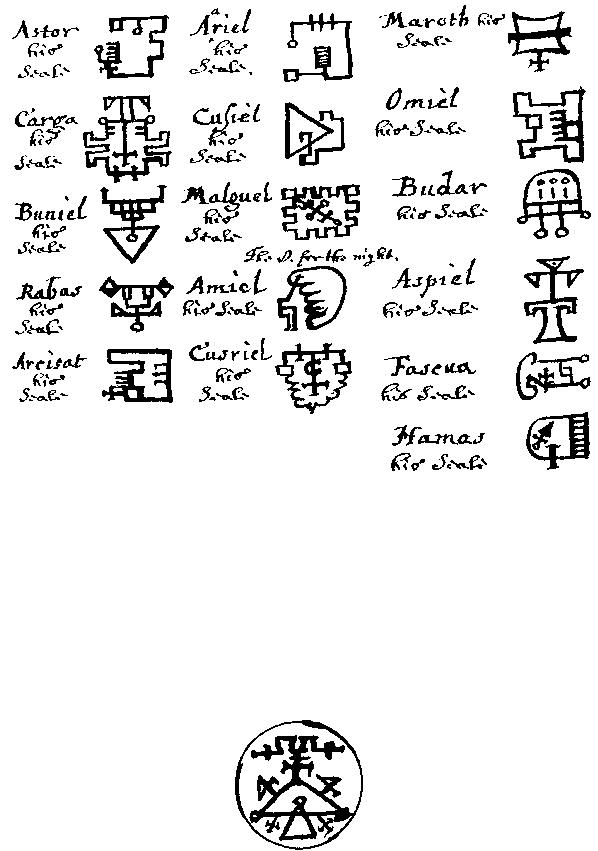 Astor
his
Seale
Carga
his
Seale
Buniel
his
Seale
Rabas
his
Seale
Arcisat
his
Seale
Ariel
his
Seale.
Cusiel
his
Seale
Malguel
his
Seale
The D. for the night.
Amiel
his Seale
Cusriel
his
Seale
Maroth his
Seale
Omiel
his Seale
Budar
his Seale
Aspiel
his Seale
Faseua
his Seale
Hamas
his Seale